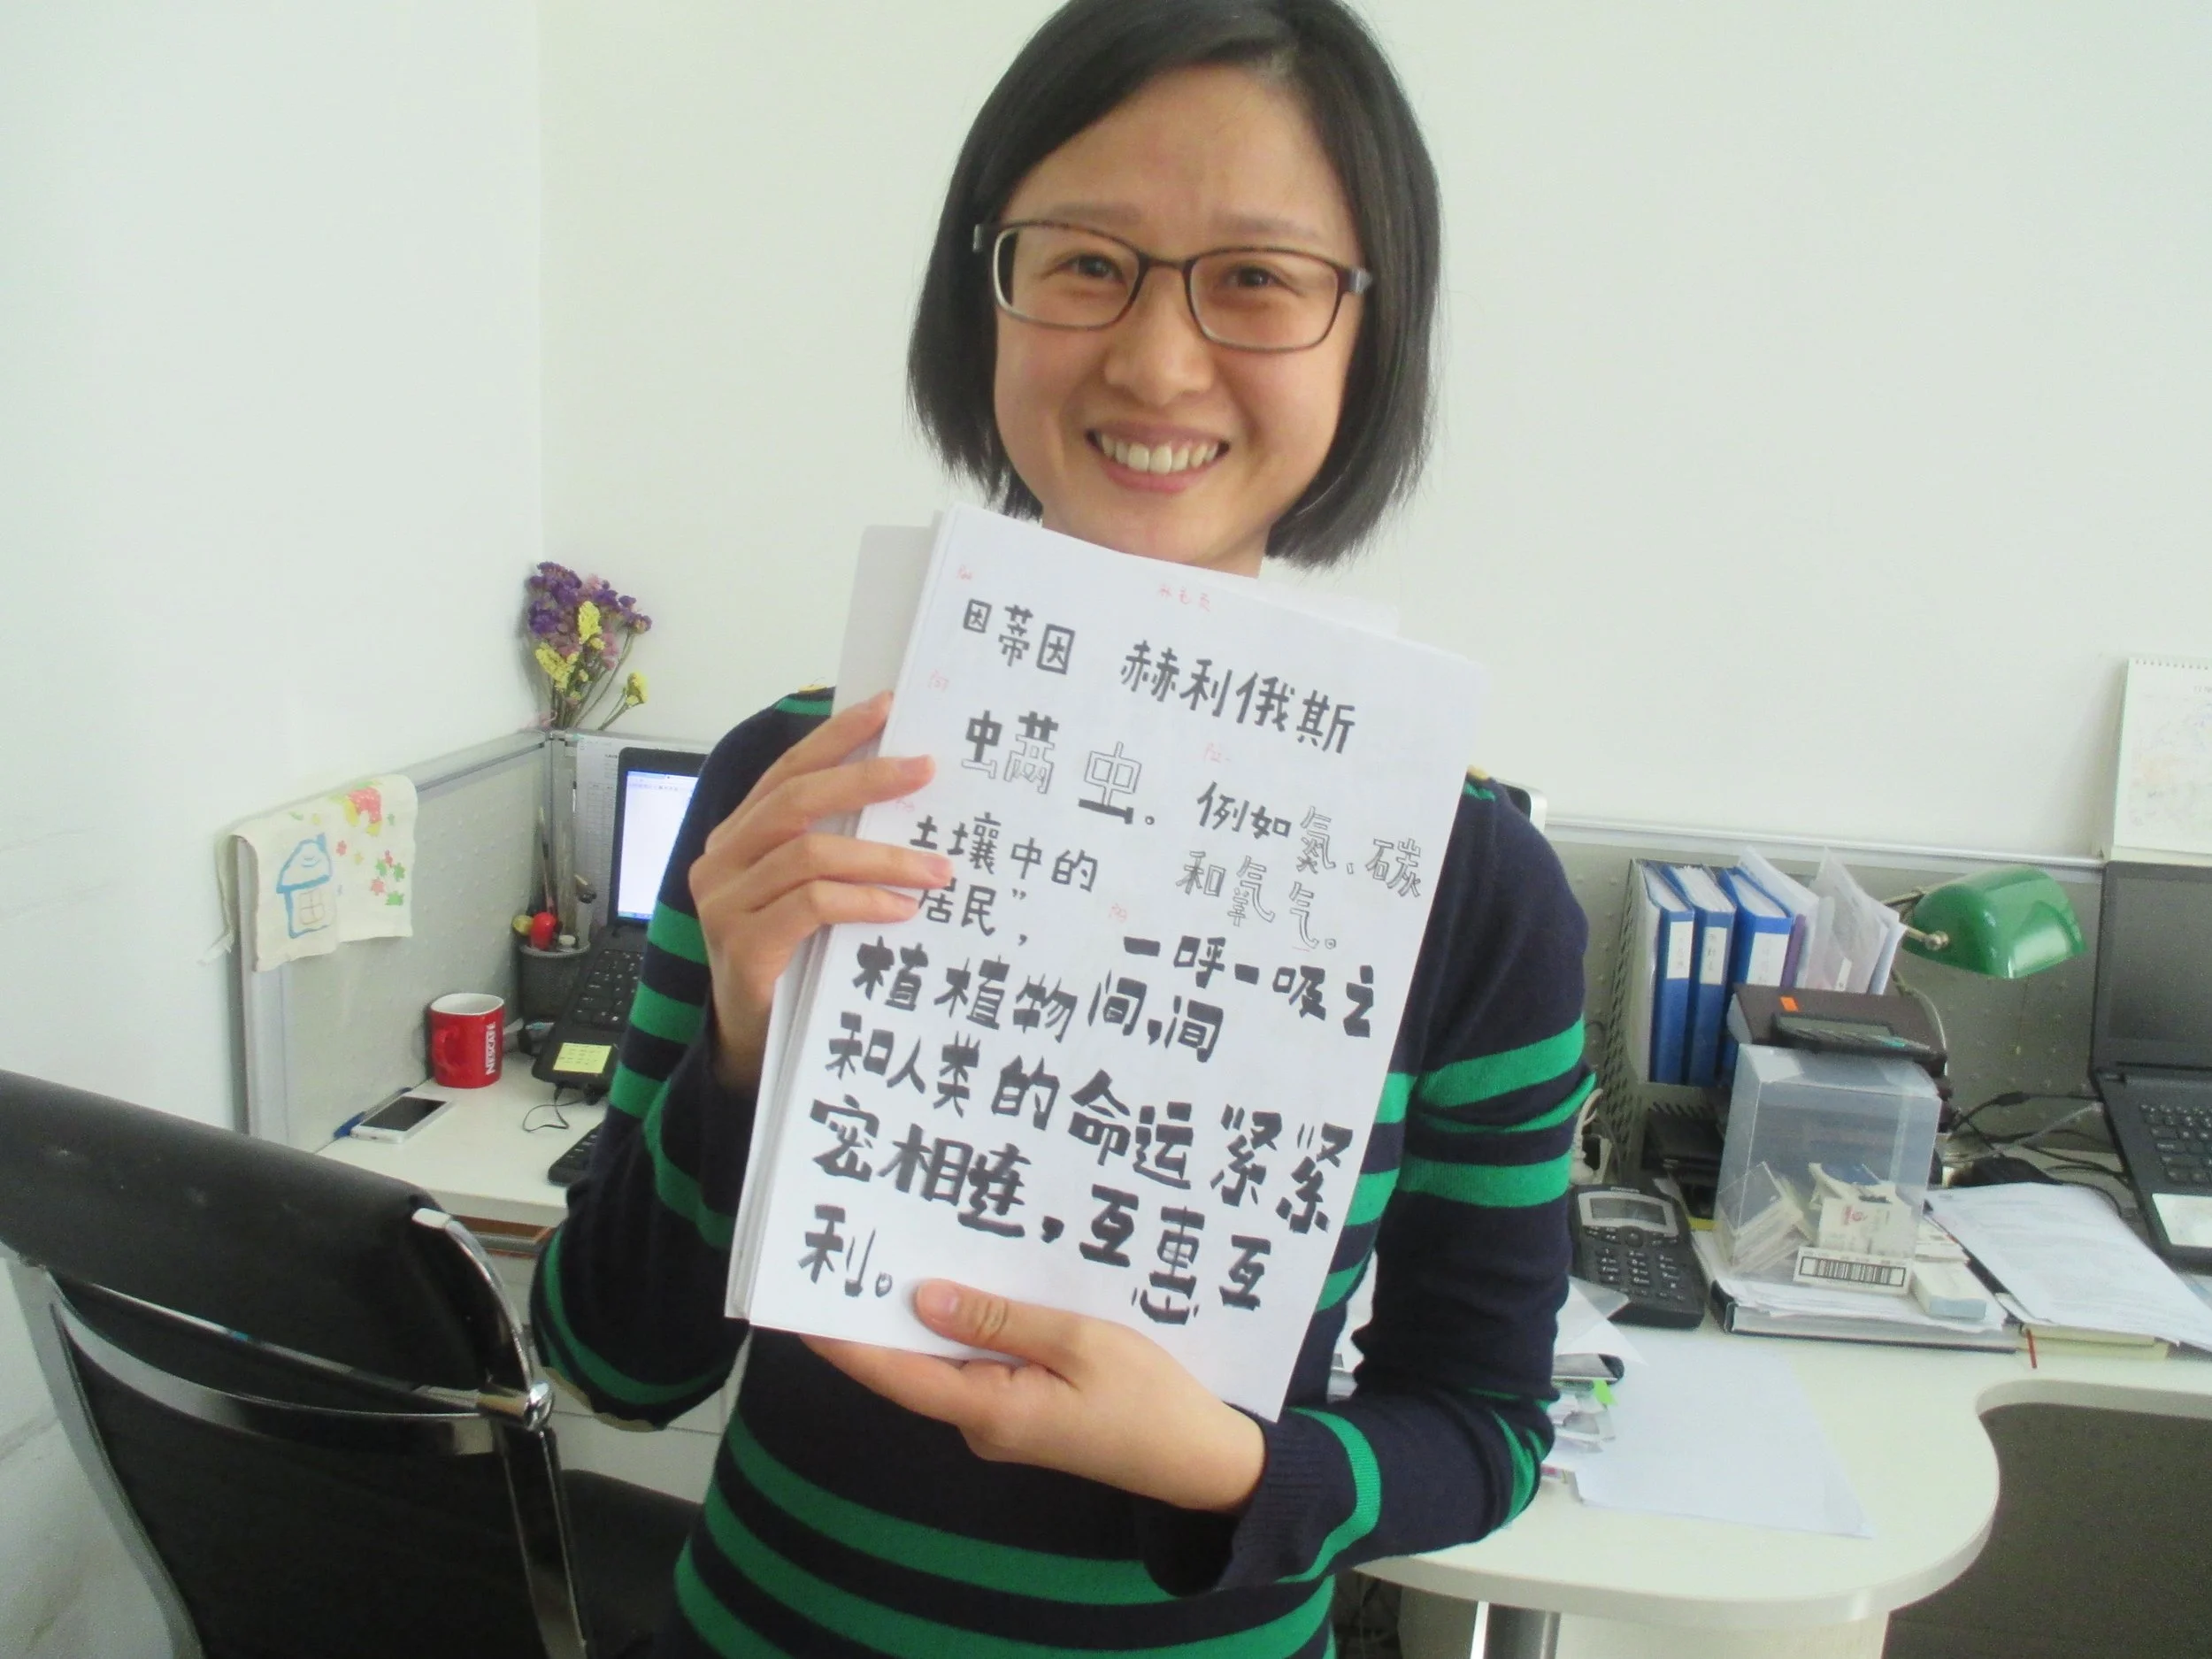 因蒂因 赫利俄斯
螨虫。
例如氮、碳
和氧气。
土壤中的
居民”,
一呼一吸之
间,间
植植物
和人类的命运紧紧
密相连,互惠互
利。
NESCAFÉ